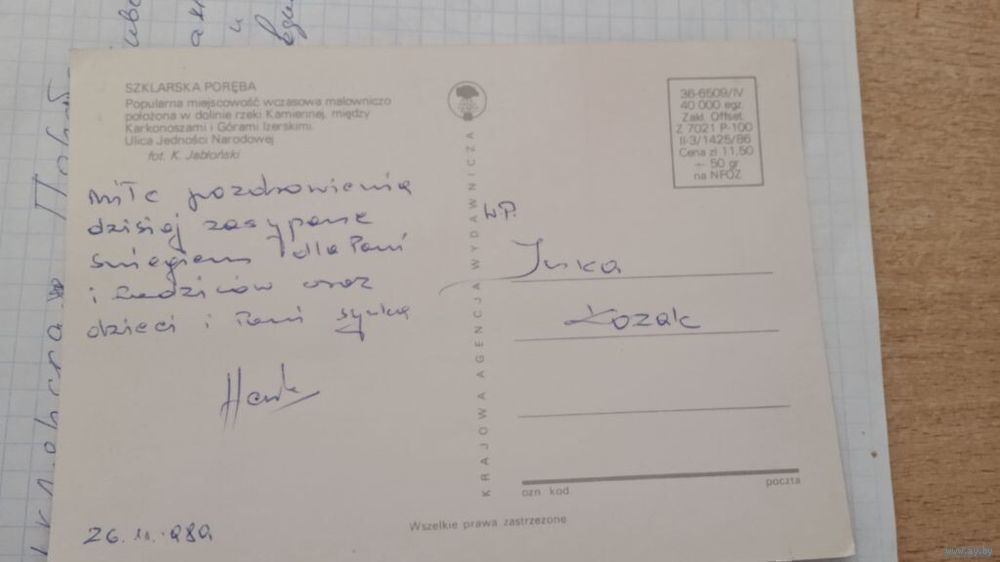 SZKLARSKA PORĘBA
Popularna miejscowość wczasowa malowniczo
położona w dolinie rzeki Kamiennej, między
Karkonoszami i Górami Izerskimi.
Ulica Jedności Narodowej
fot. K. Jabłoński
Miłe pozdrowienia
dzisiaj zasypane
śniegiem dla Pani
i Rodziców oraz
dzieci i Pani synka
26.11.
KRAJOWA AGENCJA WYDAWNICZA
36-6509/IV
40 000 egz.
Zakł. Offset.
Z 7021 P-100
II-3/1425/86
Cena zł 11,50
+ 50 gr
na NFOZ
W.P.
Kozak
ozn. kod.
poczta
Wszelkie prawa zastrzeżone
www.ay.by